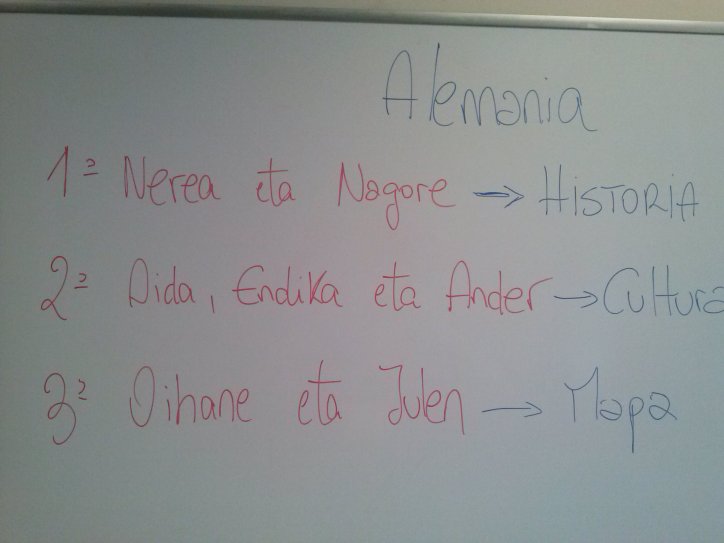 Alemania
1º Nerea eta Nagore → HiSTORiA
2º Aida, Endika eta Ander → Cultura
3º Oihane eta Julen → Mapa